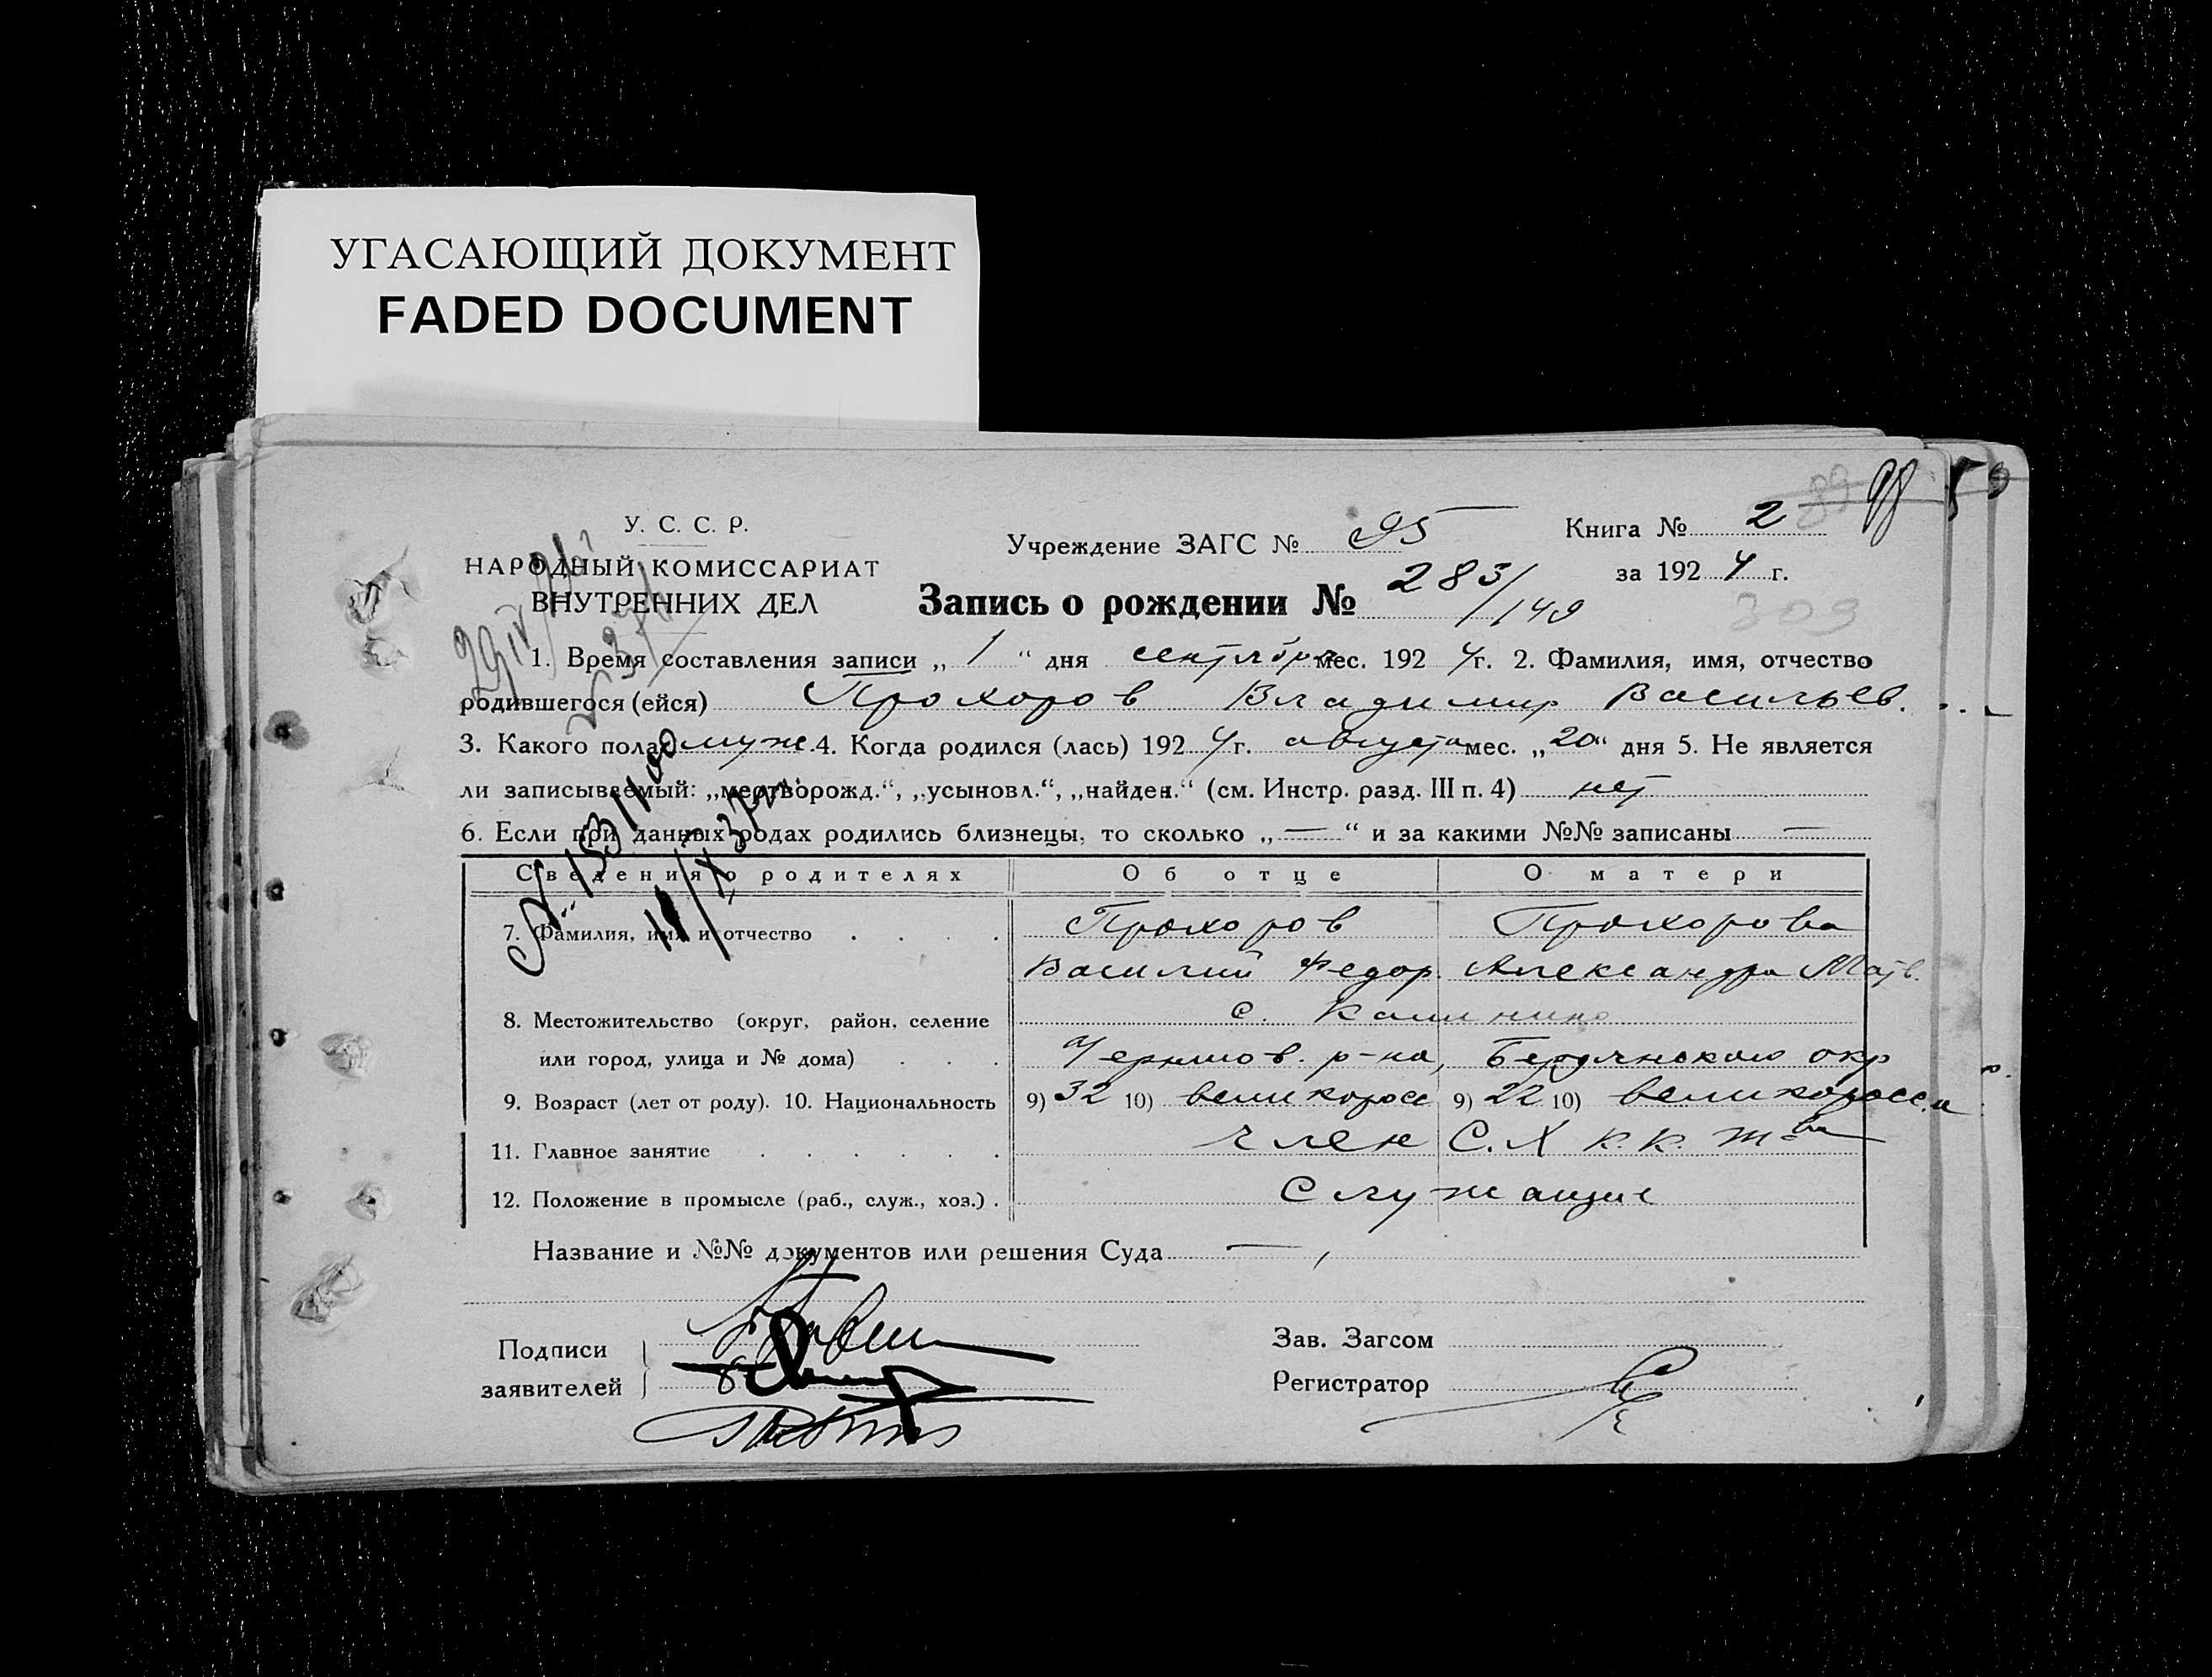 УГАСАЮЩИЙ ДОКУМЕНТ
FADED DOCUMENT
У. С. С. Р.
НАРОДНЫЙ КОМИССАРИАТ
ВНУТРЕННИХ ДЕЛ
Учреждение ЗАГС № 95
Книга № 2
за 1924 г.
89 98
Запись о рождении № 283/149
309
1. Время составления записи „ 1 “ дня сентября мес. 1924 г. 2. Фамилия, имя, отчество
родившегося (ейся) Прохоров Владимир Васильев.
3. Какого пола муж. 4. Когда родился (лась) 1924 г. августа мес. „20“ дня 5. Не является
ли записываемый: „мертворожд.“, „усыновл.“, „найден.“ (см. Инстр. разд. III п. 4) нет
6. Если при данных родах родились близнецы, то сколько „ — “ и за какими №№ записаны —
Сведения о родителях Об отце О матери
7. Фамилия, имя и отчество . . . . Прохоров Прохорова
Василий Федор. Александра Матв.
8. Местожительство (округ, район, селение с. Калинино
или город, улица и № дома) . . . р-на, Бердянского окр
9. Возраст (лет от роду). 10. Национальность 9) 32 10) великоросс 9) 22 10) великоросс.а
11. Главное занятие . . . . . . член С.Х к.к. т-ва
12. Положение в промысле (раб., служ., хоз.) . Служащие
Название и №№ документов или решения Суда —
Подписи
заявителей
Зав. Загсом
Регистратор